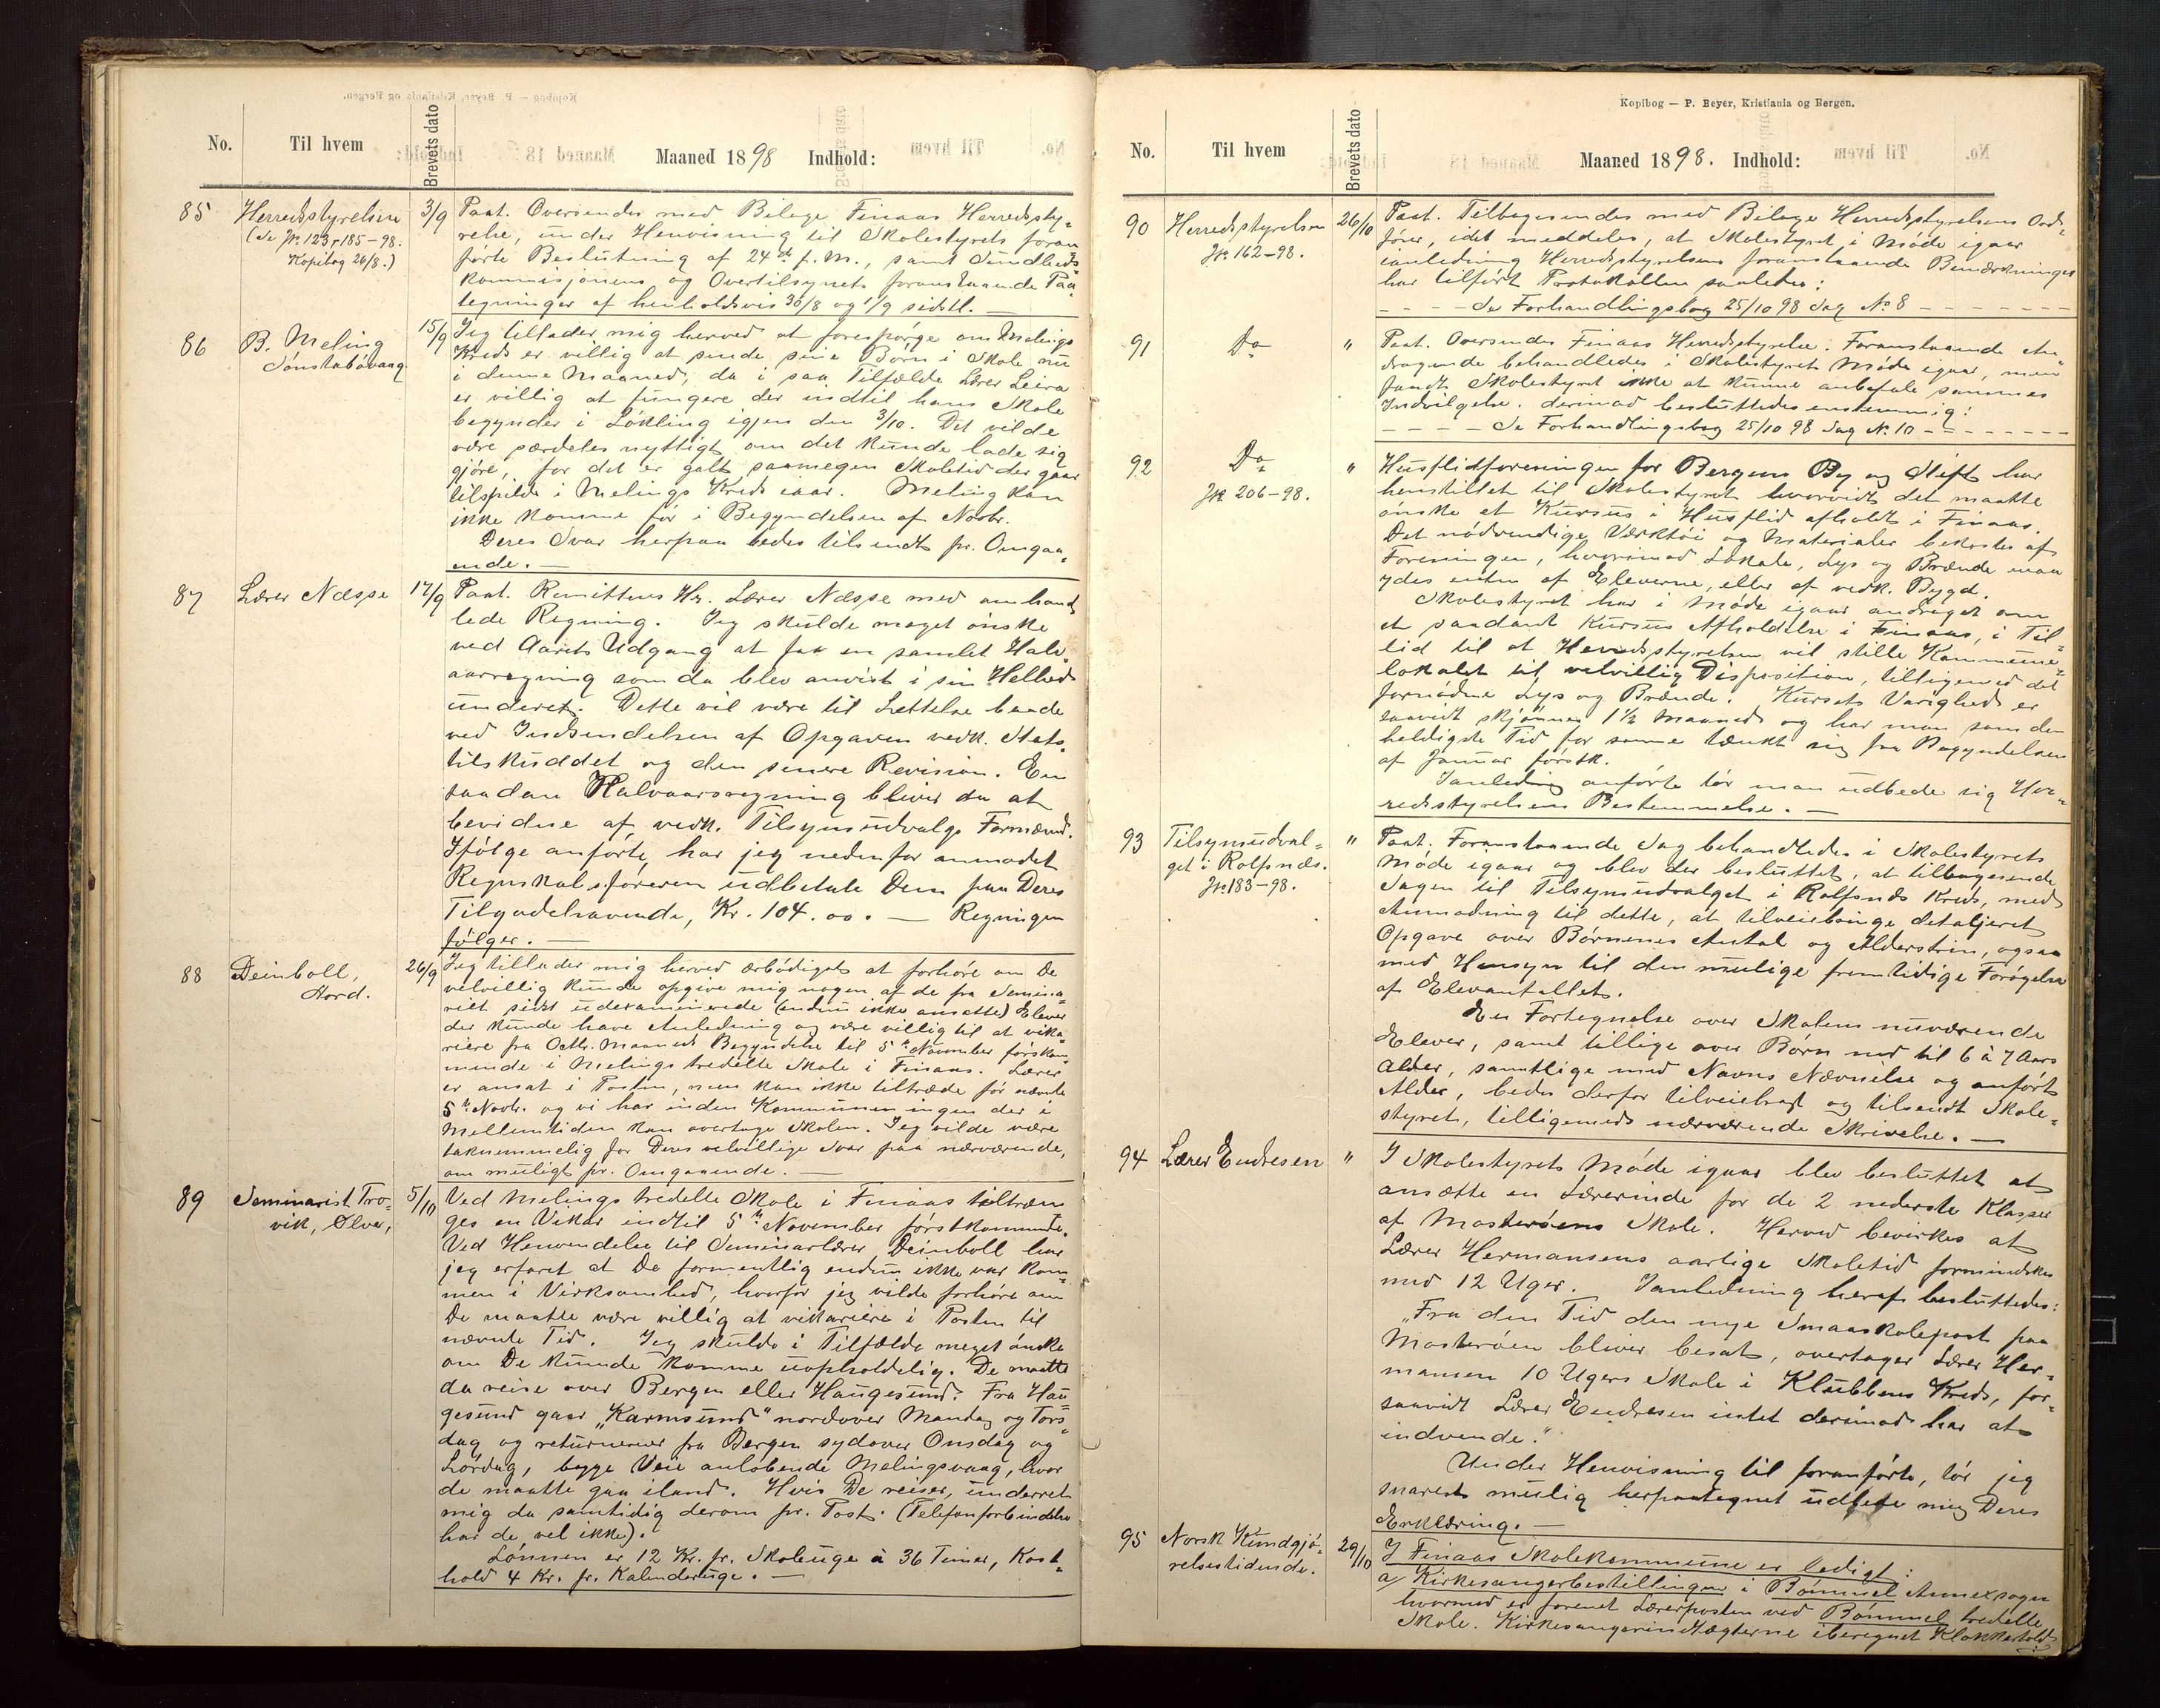 No. Til hvem Brevets dato Maaned 1898 Indhold:
85 Herredsstyrelsen 3/9 Paat. Oversendes med Bilage Finaas Herredssty-
(se Jr. 123, 185-98. relse, under Henvisning til Skolestyrets foran
Kopibog 26/8.) førte Beslutning af 24de f. M., samt Sundheds
kommisjonens og Overtilsynets foranstaaende Paa-
tegninger af henholdsvis 30/8 og 1/9 sidstl. —
86 B. Meling 15/9 Jeg tillader mig herved at forespørge om Melings
Kreds er villig at sende sine Børn i Skole nu
i denne Maaned, da i saa Tilfælde Lærer Leira
er villig at fungere der indtil hans Skole
begynder i Løkling igjen den 3/10. Det vilde
være særdeles nyttigt om det kunde lade sig
gjøre, for det er galt saamegen Skoletid der gaar
tilspilde i Melings Kreds iaar. Meling kan
ikke komme før i Begyndelsen af Novbr.
Deres Svar herpaa bedes tilsendt pr. Omgaa-
ende. —
87 Lærer Næsse 17/9 Paat. Remitteres Hr. Lærer Næsse med omhand
lede Regning. Jeg skulde meget ønske
ved Aarets Udgang at faa en samlet Halv-
aarsregning som da blev anvist i sin Helhed
underet. Dette vil være til Lettelse baade
ved Indsendelsen af Opgaven vedk. Stats-
tilskuddet og den senere Revision. En
saadan Halvaarsregning bliver da at
bevidne af vedk. Tilsynsudvalgs Formænd.
Ifølge anførte, har jeg nedenfor anmodet
Regnskabsføreren udbetale Dem paa Deres
Tilgodehavende, Kr. 104.00. — Regningen
følger. —
88 Deinboll, 26/9 Jeg tillader mig herved ærbødigst at forhøre om De
Stord. velvillig kunde opgive mig nogen af de fra Semina-
riet sidst udexaminerede (endnu ikke ansatte) Elever
der kunde have Anledning og være villig til at vika-
riere fra Octbr. Maaneds Begyndelse til 5te November førstkom-
mende i Melings tredelte Skole i Finaas. Lærer
er ansat i Posten, men kan ikke tiltræde før nævnte
5te Novbr. og vi har inden Kommunen ingen der i
Mellemtiden kan overtage Skolen. Jeg vilde være
taknemmelig for Deres velvillige Svar paa nærværende,
om muligt pr. Omgaaende. —
89 Seminarist Tro- 5/10 Ved Melings tredelte Skole i Finaas tiltræn
vik, Ølver, ges en Vikar indtil 5te November førstkommende.
Ved Henvendelse til Seminarlærer Deinboll har
jeg erfaret at De formentlig endnu ikke var kom-
men i Virksomhed, hvorfor jeg vilde forhøre om
De maatte være villig at vikariere i Posten til
nævnte Tid. Jeg skulde i Tilfælde meget ønske
om De kunde komme uopholdelig. De maatte
da reise over Bergen eller Haugesund. Fra Hau-
gesund gaar „Karmsund" nordover Mandag og Tors-
dag og returnerer fra Bergen sydover Onsdag og
Lørdag, begge Veie anløbende Melingsvaag, hvor
de maatte gaa iland. Hvis De reiser, underret
mig da samtidig derom pr. Post. (Telefonforbindelse
har de vel ikke).
Lønnen er 12 Kr. pr. Skoleuge à 36 Timer, Kost-
hold 4 Kr. pr. Kalenderuge. —
Kopibog — P. Beyer, Kristiania og Bergen.
No. Til hvem Brevets dato Maaned 1898. Indhold:
90 Herredsstyrelsen 26/10 Paat. Tilbagesendes med Bilage Herredsstyrelsens Ord-
Jr. 162-98. fører, idet meddeles, at Skolestyret i Møde igaar
ianledning Herredsstyrelsens foranstaaende Bemærkninger
har tilført Protokollen saaledes:
- - - - Se Forhandlingsbog 25/10 98 Sag No 8 - - - - - -
91 Do " Paat. Oversendes Finaas Herredsstyrelse. Foranstaaende An-
dragende behandledes i Skolestyrets Møde igaar, men
fandt Skolestyret ikke at kunne anbefale sammes
Indvilgelse. Derimod besluttedes enstemmig:
- - - - Se Forhandlingsbog 25/10 98 Sag No. 10 - - - - - -
92 Do " Husflidforeningen for Bergens By og Stift har
Jr. 206-98. henstillet til Skolestyret hvorvidt det maatte
ønske et Kursus i Husflid afholdt i Finaas.
Det nødvendige Værktøi og Materialer bekostes af
Foreningen, hvorimod Lokale, Lys og Brænde maa
ydes enten af Eleverne, eller af vedk. Bygd.
Skolestyret har i Møde igaar andraget om
et saadant Kursus Afholdelse i Finaas, i Til-
lid til at Herredsstyrelsen vil stille Kommune-
lokalet til velvillig Disposition, tilligemed det
fornødne Lys og Brænde. Kursets Varighed er
saavidt skjønnes 1½ Maaned og har man som den
heldigste Tid for samme tænkt sig fra Begyndelsen
af Januar førstk.
Ianledning anførte tør man udbede sig Her-
redsstyrelsens Bestemmelse. —
93 Tilsynsudval- " Paat. Foranstaaende Sag behandledes i Skolestyrets
get i Rolfsnæs. Møde igaar og blev der besluttet, at tilbagesende
Jr. 183-98. Sagen til Tilsynsudvalget i Rolfsnæs Kreds, med
Anmodning til dette, at tilveiebringe detaljeret
Opgave over Børnenes Antal og Alderstrin, ogsaa
med Hensyn til den mulige fremtidige Forøgelse
af Elevantallet.
En Fortegnelse over Skolens nuværende
Elever, samt tillige over Børn ned til 6 à 7 Aars
Alder, samtlige med Navns Nævnelse og anført
Alder, bedes derfor tilveiebragt og tilsendt Skole-
styret, tilligemed nærværende Skrivelse. —
94 Lærer Endresen " I Skolestyrets Møde igaar blev besluttet at
ansætte en Lærerinde for de 2 nederste Klasser
af Mosterøens Skole. Herved bevirkes at
Lærer Hermansens aarlige Skoletid formindskes
med 12 Uger. Ianledning heraf besluttedes:
„Fra den Tid den nye Smaaskolepost paa
Mosterøen bliver besat, overtager Lærer Her-
mansen 10 Ugers Skole i Klubbens Kreds, for-
saavidt Lærer Endresen intet derimod har at
indvende."
Under Henvisning til foranførte, tør jeg
snarest mulig herpaategnet udbede mig Deres
Erklæring. —
95 Norsk Kundgjø- 29/10 I Finaas Skolekommune er ledigt:
relsestidende. a/ Kirkesangerbestillingen i Bømmel Annexsogn
hvormed er forenet Lærerposten ved Bømmel tredelte
Skole. Kirkesangerindtægterne iberegnet Klokkertold